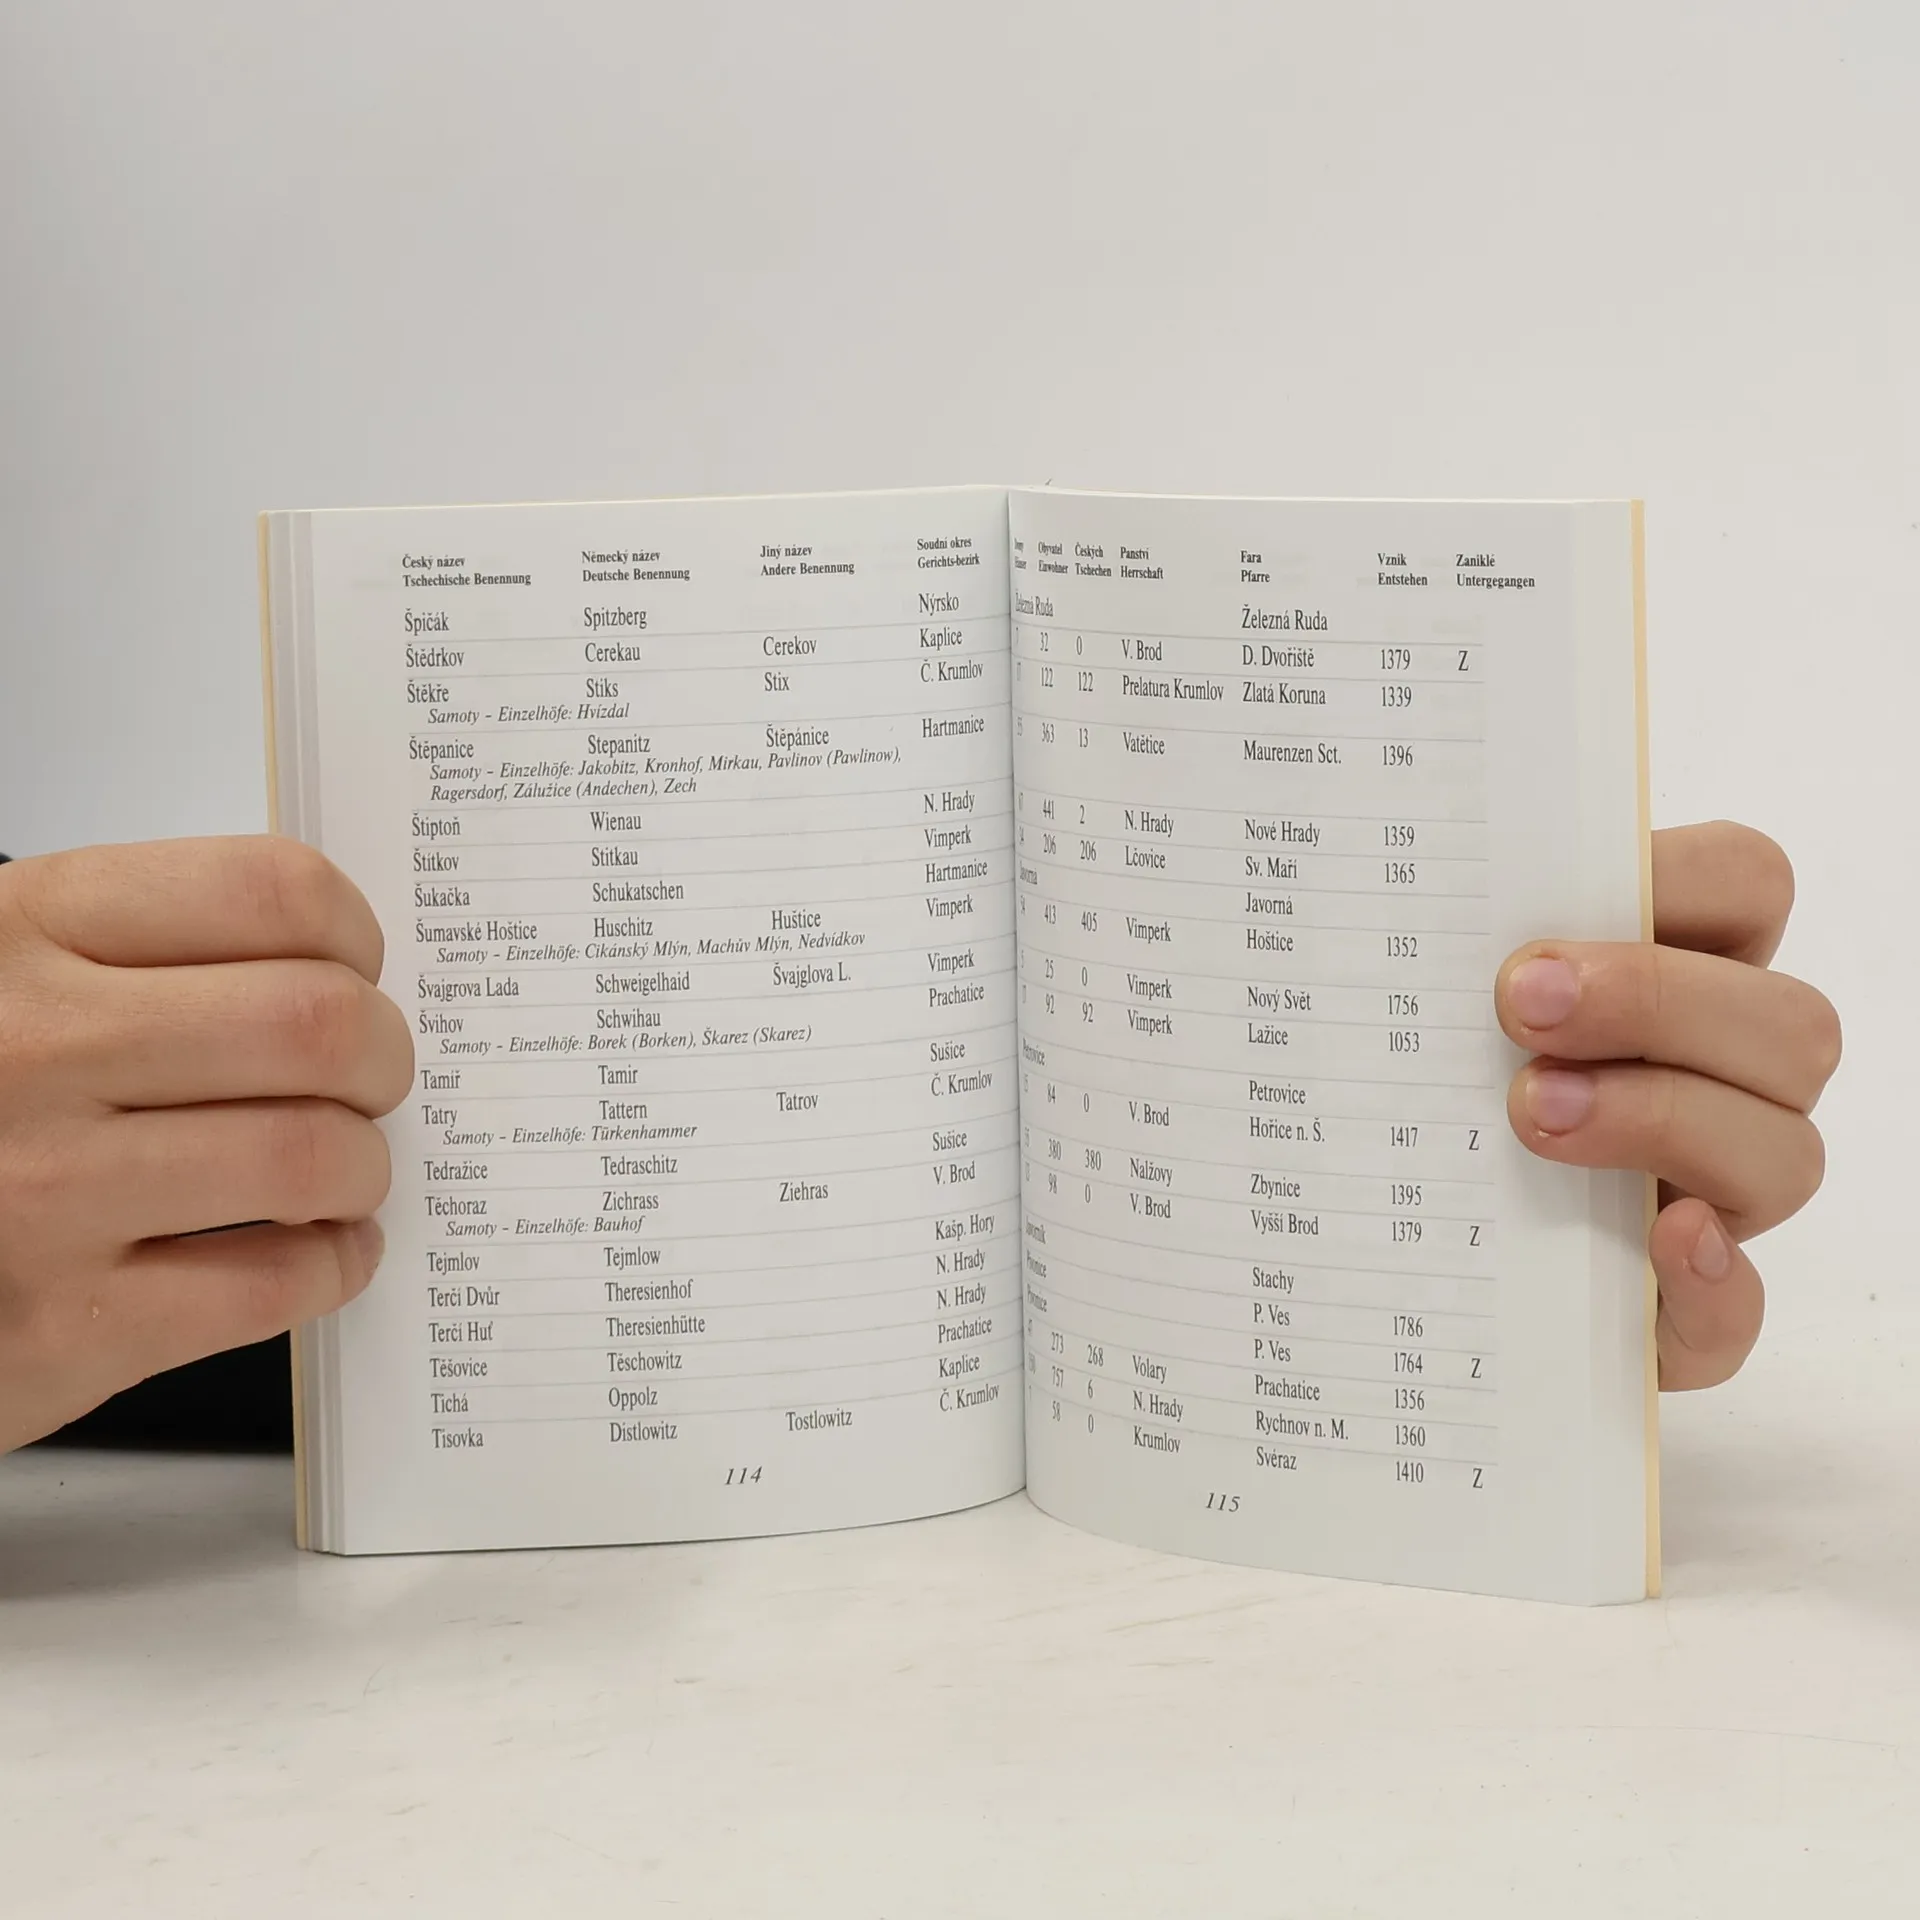 Český název Německý název Jiný název Soudní okres
Tschechische Benennung Deutsche Benennung Andere Benennung Gerichts-bezirk
Špičák Spitzberg Nýrsko
Štědrkov Cerekau Cerekov Kaplice
Štěkře Stiks Stix Č. Krumlov
Samoty - Einzelhöfe: Hvízdal
Štěpanice Stepanitz Štěpánice Hartmanice
Samoty - Einzelhöfe: Jakobitz, Kronhof, Mirkau, Pavlinov (Pawlinow),
Ragersdorf, Zálužice (Andechen), Zech
Štiptoň Wienau N. Hrady
Štítkov Stitkau Vimperk
Šukačka Schukatschen Hartmanice
Šumavské Hoštice Huschitz Huštice Vimperk
Samoty - Einzelhöfe: Cikánský Mlýn, Machův Mlýn, Nedvídkov
Švajgrova Lada Schweigelhaid Švajglova L. Vimperk
Švihov Schwihau Prachatice
Samoty - Einzelhöfe: Borek (Borken), Škarez (Skarez)
Tamíř Tamir Sušice
Tatry Tattern Tatrov Č. Krumlov
Samoty - Einzelhöfe: Türkenhammer
Tedražice Tedraschitz Sušice
Těchoraz Zichrass Ziehras V. Brod
Samoty - Einzelhöfe: Bauhof
Tejmlov Tejmlow Kašp. Hory
Terčí Dvůr Theresienhof N. Hrady
Terčí Huť Theresienhütte N. Hrady
Těšovice Těschowitz Prachatice
Tichá Oppolz Kaplice
Tisovka Distlowitz Tostlowitz Č. Krumlov
114
Obyvatel Českých Panství Fara Vznik Zaniklé
Einwohner Tschechen Herrschaft Pfarre Entstehen Untergegangen
Železná Ruda Železná Ruda
32 0 V. Brod D. Dvořiště 1379 Z
122 122 Prelatura Krumlov Zlatá Koruna 1339
363 13 Vatětice Maurenzen Sct. 1396
441 2 N. Hrady Nové Hrady 1359
206 206 Lčovice Sv. Maří 1365
Javorná
413 405 Vimperk Hoštice 1352
25 0 Vimperk Nový Svět 1756
92 92 Vimperk Lažice 1053
Petrovice Petrovice
84 0 V. Brod Hořice n. Š. 1417 Z
380 380 Nalžovy Zbynice 1395
98 0 V. Brod Vyšší Brod 1379 Z
Stachy
P. Ves 1786
P. Ves 1764 Z
273 268 Volary Prachatice 1356
757 6 N. Hrady Rychnov n. M. 1360
58 0 Krumlov Svéraz 1410 Z
115